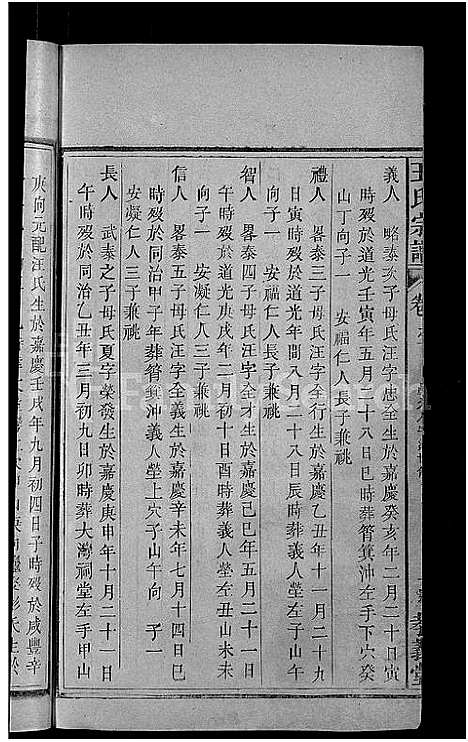 王氏宗譜
卷
義人　略泰次子母氏汪字忠全生於嘉慶癸亥年二月二十日寅
時歿於道光壬寅年五月二十八日巳時葬筲箕沖左手下穴癸
山丁向子一　安福仁人長子兼祧
禮人　畧泰三子母氏汪字全行生於嘉慶乙丑年十一月二十九
日寅時歿於道光年間八月二十八日辰時葬義人塋左子山午
向子一　安福仁人長子兼祧
智人　畧泰四子母氏汪字全才生於嘉慶己巳年五月二十一日
時歿於道光庚戌年二月初十日酉時葬義人塋左丑山未
向子一　安凝仁人三子兼祧
信人　畧泰五子母氏汪字全義生於嘉慶辛未年七月十四日巳
時歿於同治甲子年葬筲箕沖義人塋上穴子山午向　子一
安凝仁人三子兼祧
長人　武泰之子母氏夏字榮發生於嘉慶庚申年十月二十一日
午時歿於同治乙丑年三月初九日卯時葬大灣祠堂左手甲山
庚向元配汪氏生於嘉慶壬戌年九月初四日子時歿於咸豐辛